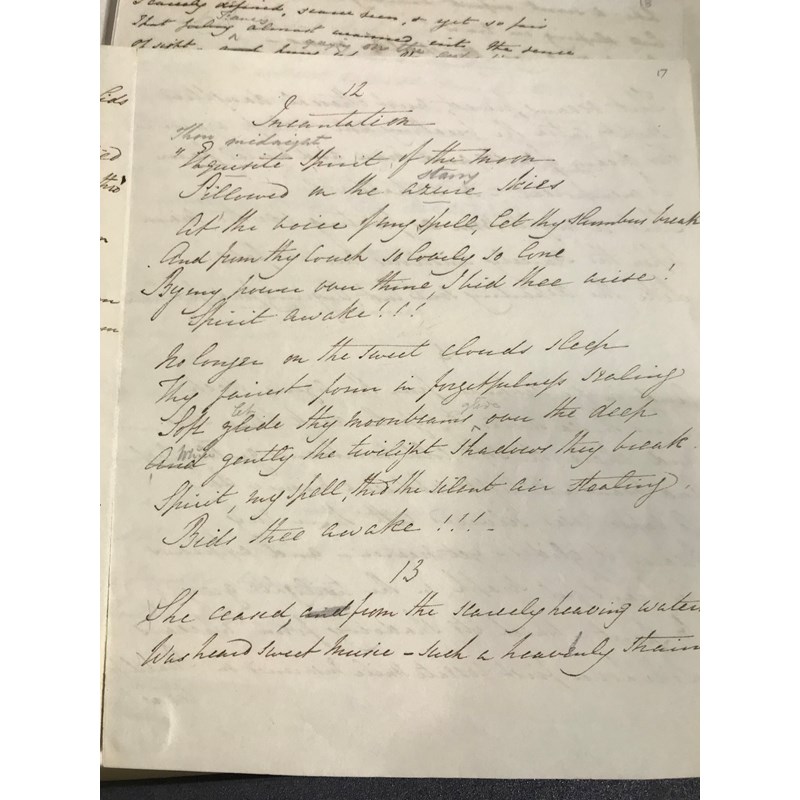 scarcely defined, scarce seen, & yet so fair
That feeling almost
of sight
17
12
Incantation
Thou midnight
"Exquisite Spirit of the moon
starry
Pillowed on the azure skies
At the voice of my spell, let thy slumbers break
And from thy couch so lovely so lone
By my power over thine, I bid thee arise!
Spirit awake!!!
No longer on the sweet clouds sleep
Thy fairest form in forgetfulness sealing
let glide
Soft glide thy moonbeams over the deep
While
And gently the twilight shadows they break.
Spirit, my spell, thro' the silent air stealing,
Bids thee awake!!!_
13
She ceased, and from the scarcely heaving water
Was heard sweet music – such a heavenly strain